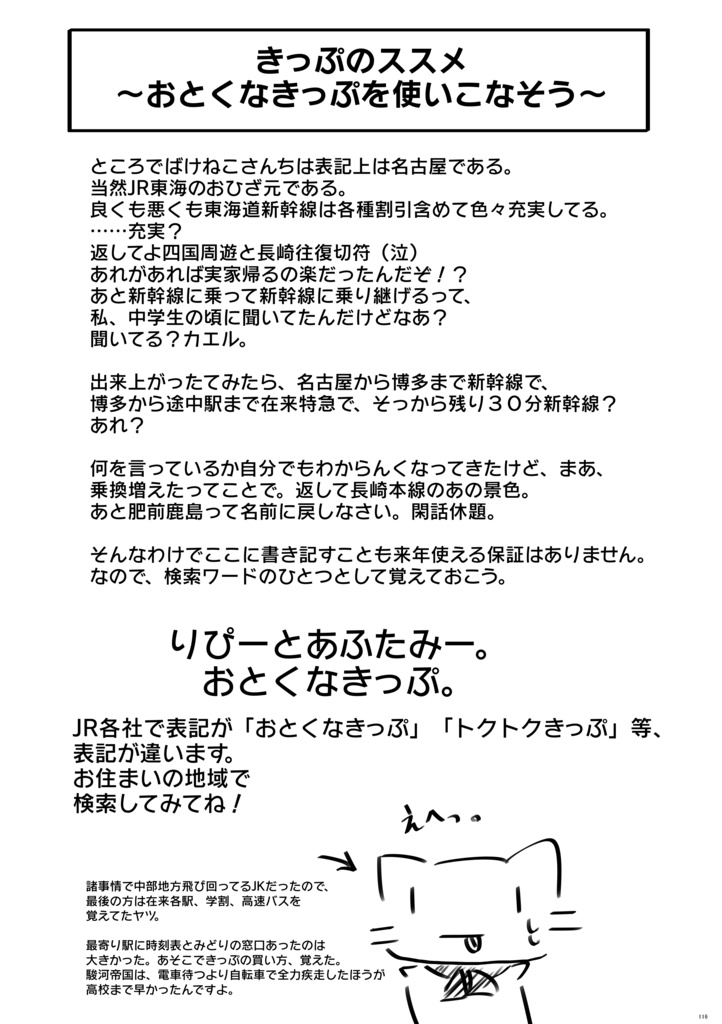 きっぷのススメ
～おとくなきっぷを使いこなそう～
ところでばけねこさんちは表記上は名古屋である。
当然JR東海のおひざ元である。
良くも悪くも東海道新幹線は各種割引含めて色々充実してる。
……充実？
返してよ四国周遊と長崎往復切符（泣）
あれがあれば実家帰るの楽だったんだぞ！？
あと新幹線に乗って新幹線に乗り継げるって、
私、中学生の頃に聞いてたんだけどなあ？
聞いてる？カエル。
出来上がったてみたら、名古屋から博多まで新幹線で、
博多から途中駅まで在来特急で、そっから残り３０分新幹線？
あれ？
何を言っているか自分でもわからんくなってきたけど、まあ、
乗換増えたってことで。返して長崎本線のあの景色。
あと肥前鹿島って名前に戻しなさい。閑話休題。
そんなわけでここに書き記すことも来年使える保証はありません。
なので、検索ワードのひとつとして覚えておこう。
りぴーとあふたみー。
おとくなきっぷ。
JR各社で表記が「おとくなきっぷ」「トクトクきっぷ」等、
表記が違います。
お住まいの地域で
検索してみてね！
えへっ。
諸事情で中部地方飛び回ってるJKだったので、
最後の方は在来各駅、学割、高速バスを
覚えてたヤツ。
最寄り駅に時刻表とみどりの窓口あったのは
大きかった。あそこできっぷの買い方、覚えた。
駿河帝国は、電車待つより自転車で全力疾走したほうが
高校まで早かったんですよ。
116